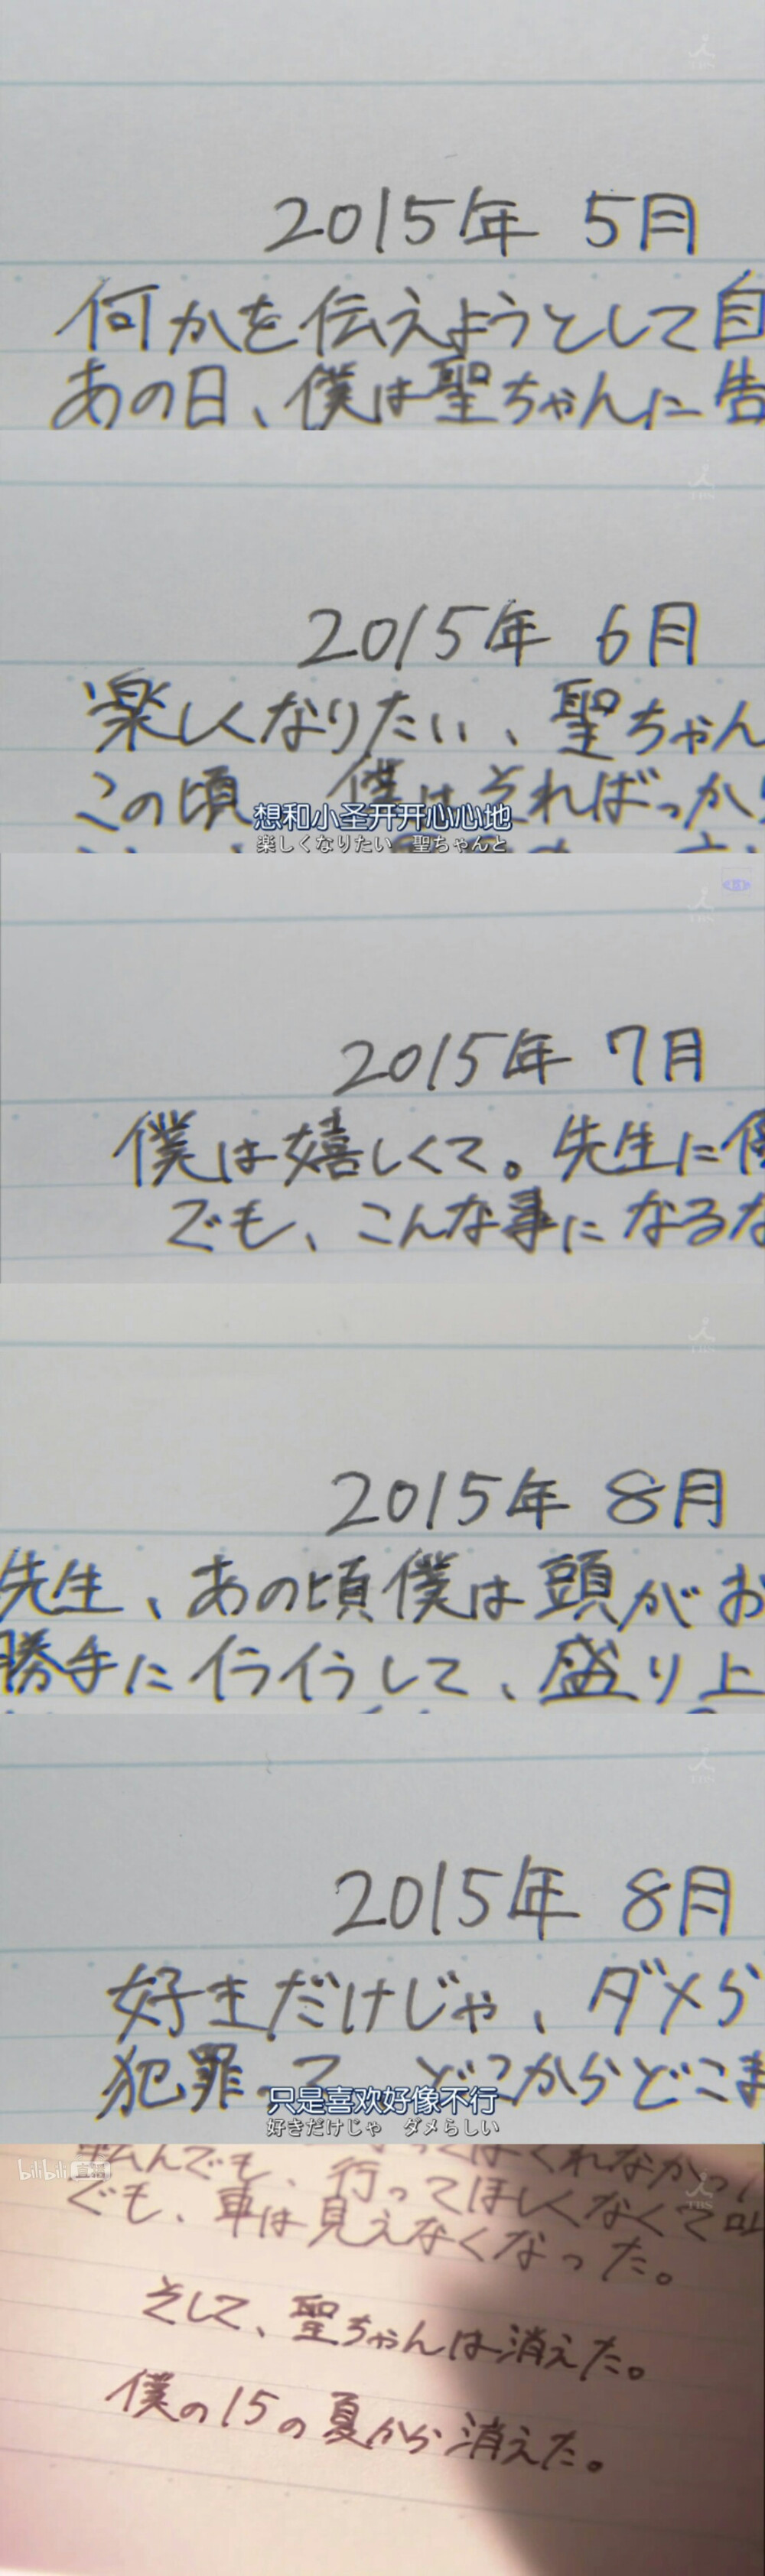 2015年 5月
何かを伝えようとして自
あの日、僕は聖ちゃんに告
TBS
2015年 6月
楽しくなりたい、聖ちゃん
この頃 僕はそればっかり
想和小圣开开心心地
楽しくなりたい 聖ちゃんと
TBS
2015年 7月
僕は嬉しくて。先生に
でも、こんな事になるな
2015年 8月
先生、あの頃僕は頭がお
勝手にイライラして、盛り上
TBS
2015年 8月
好きだけじゃ、ダメら
犯罪って どこからどこま
只是喜欢好像不行
好きだけじゃ ダメらしい
bilibili
TBS
でも、車は見えなくなった。
そして、聖ちゃんは消えた。
僕の15の夏から消えた。